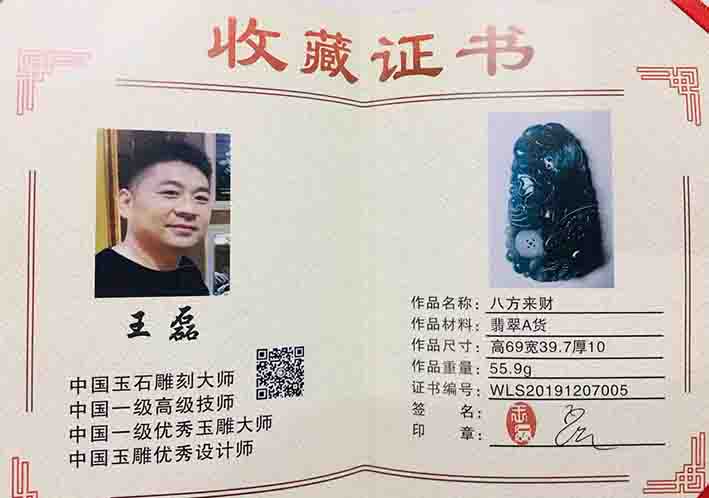 收藏证书
王磊
中国玉石雕刻大师
中国一级高级技师
中国一级优秀玉雕大师
中国玉雕优秀设计师
作品名称：八方来财
作品材料：翡翠A货
作品尺寸：高69宽39.7厚10
作品重量：55.9g
证书编号：WLS20191207005
签 名：
印 章：